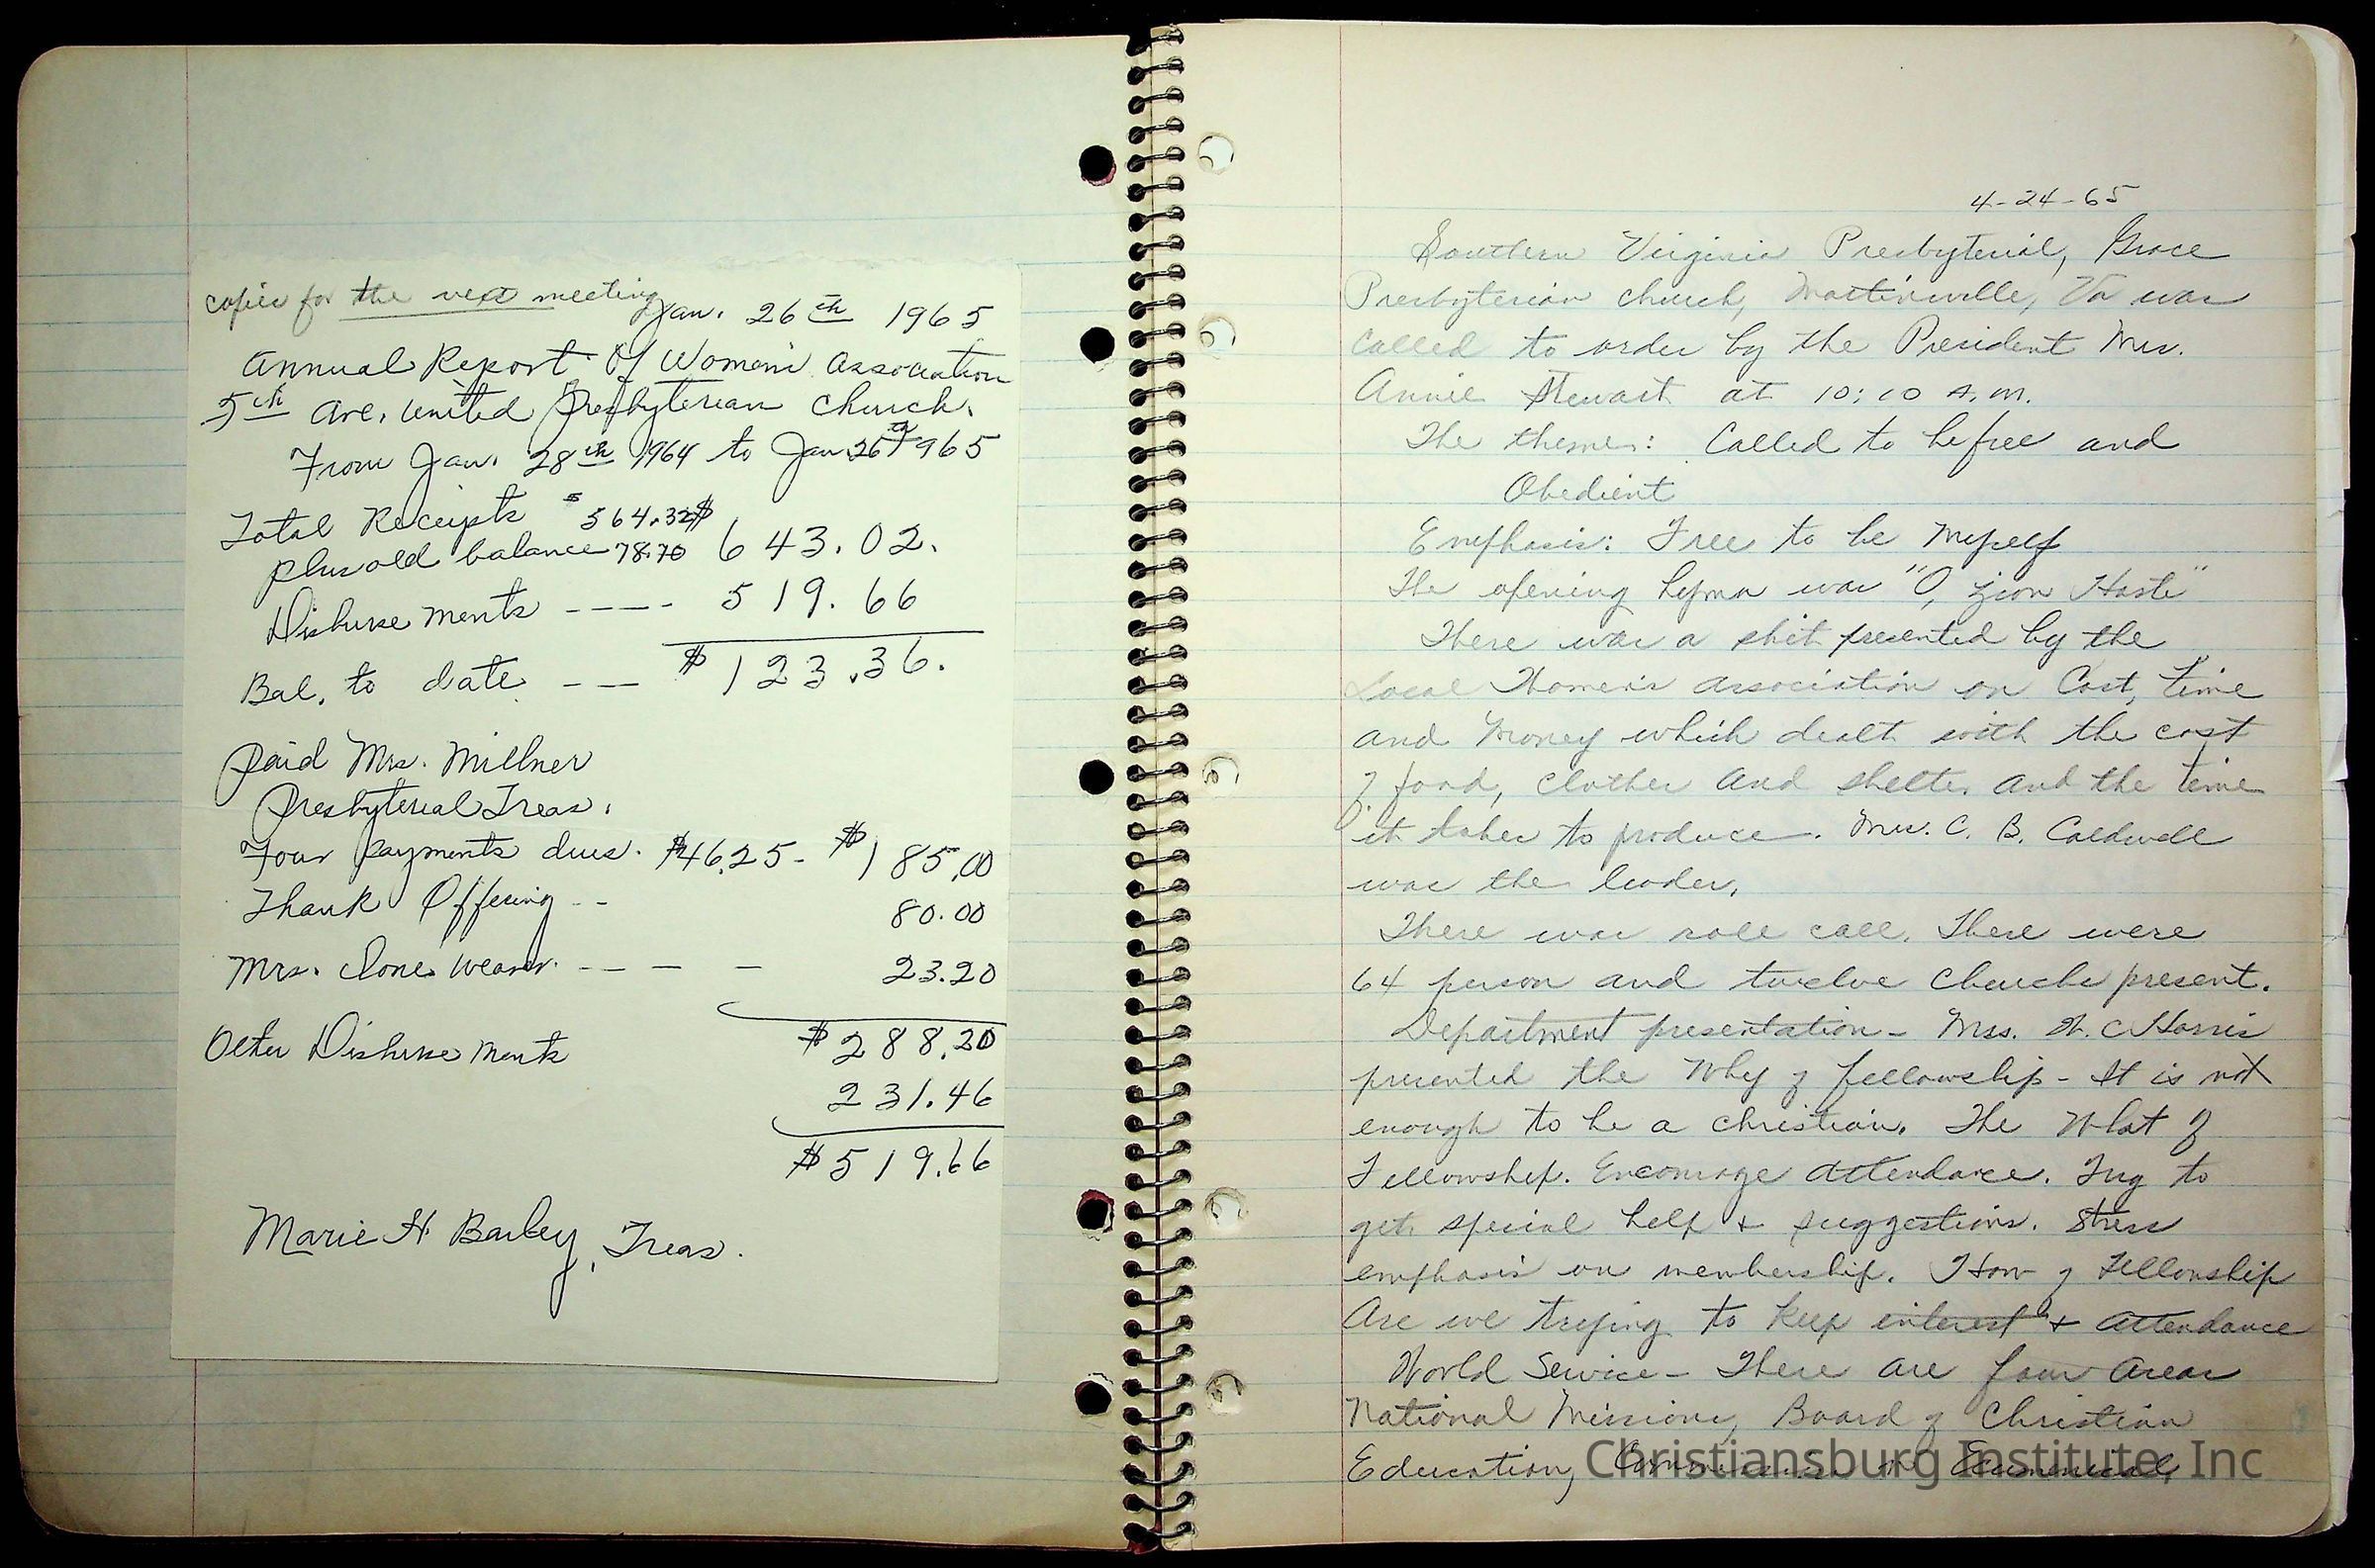 copies for the next meeting
Jan. 26th 1965
Annual Report Of Women's Association
5th Ave. United Presbyterian Church.
From Jan. 28th 1964 to Jan. 26th 1965
Total Receipts $564.32 $
plus old balance 78.70 643.02.
Disbursements ---- 519.66
Bal. to date -- $123.36.
Paid Mrs. Millner
Presbyterial Treas.
Four payments dues. $46.25- $185.00
Thank Offering -- 80.00
Mrs. Ione Weaver. --- - 23.20
$288.20
Other Disbursements
231.46
$519.66
Marie H. Barley, Treas.
4-24-65
Southern Virginia Presbyterial, Grace
Presbyterian Church, Martinsville, Va was
Called to order by the President Mrs.
Annie Stewart at 10:10 A.M.
The theme: Called to be free and
Obedient
Emphasis: Free to be Myself
The opening hymn was "O, Zion Haste"
There was a skit presented by the
Local Women's Association on Cost, Time
and Money which dealt with the cost
of food, clothes and shelter and the time
it takes to produce. Mrs. C. B. Caldwell
was the leader.
There was role call. There were
64 person and twelve Churches present.
Department presentation - Mrs. W. C. Harris
presented the Why of fellowship - It is not
enough to be a christian. The What of
Fellowship. Encourage attendance. Try to
get special help + suggestions. Stress
emphasis on membership. How of Fellowship
Are we trying to keep interest + attendance
World Service - There are four Areas
National Missions, Board of Christian
Education, Ecumenical,
Christiansburg Institute, Inc